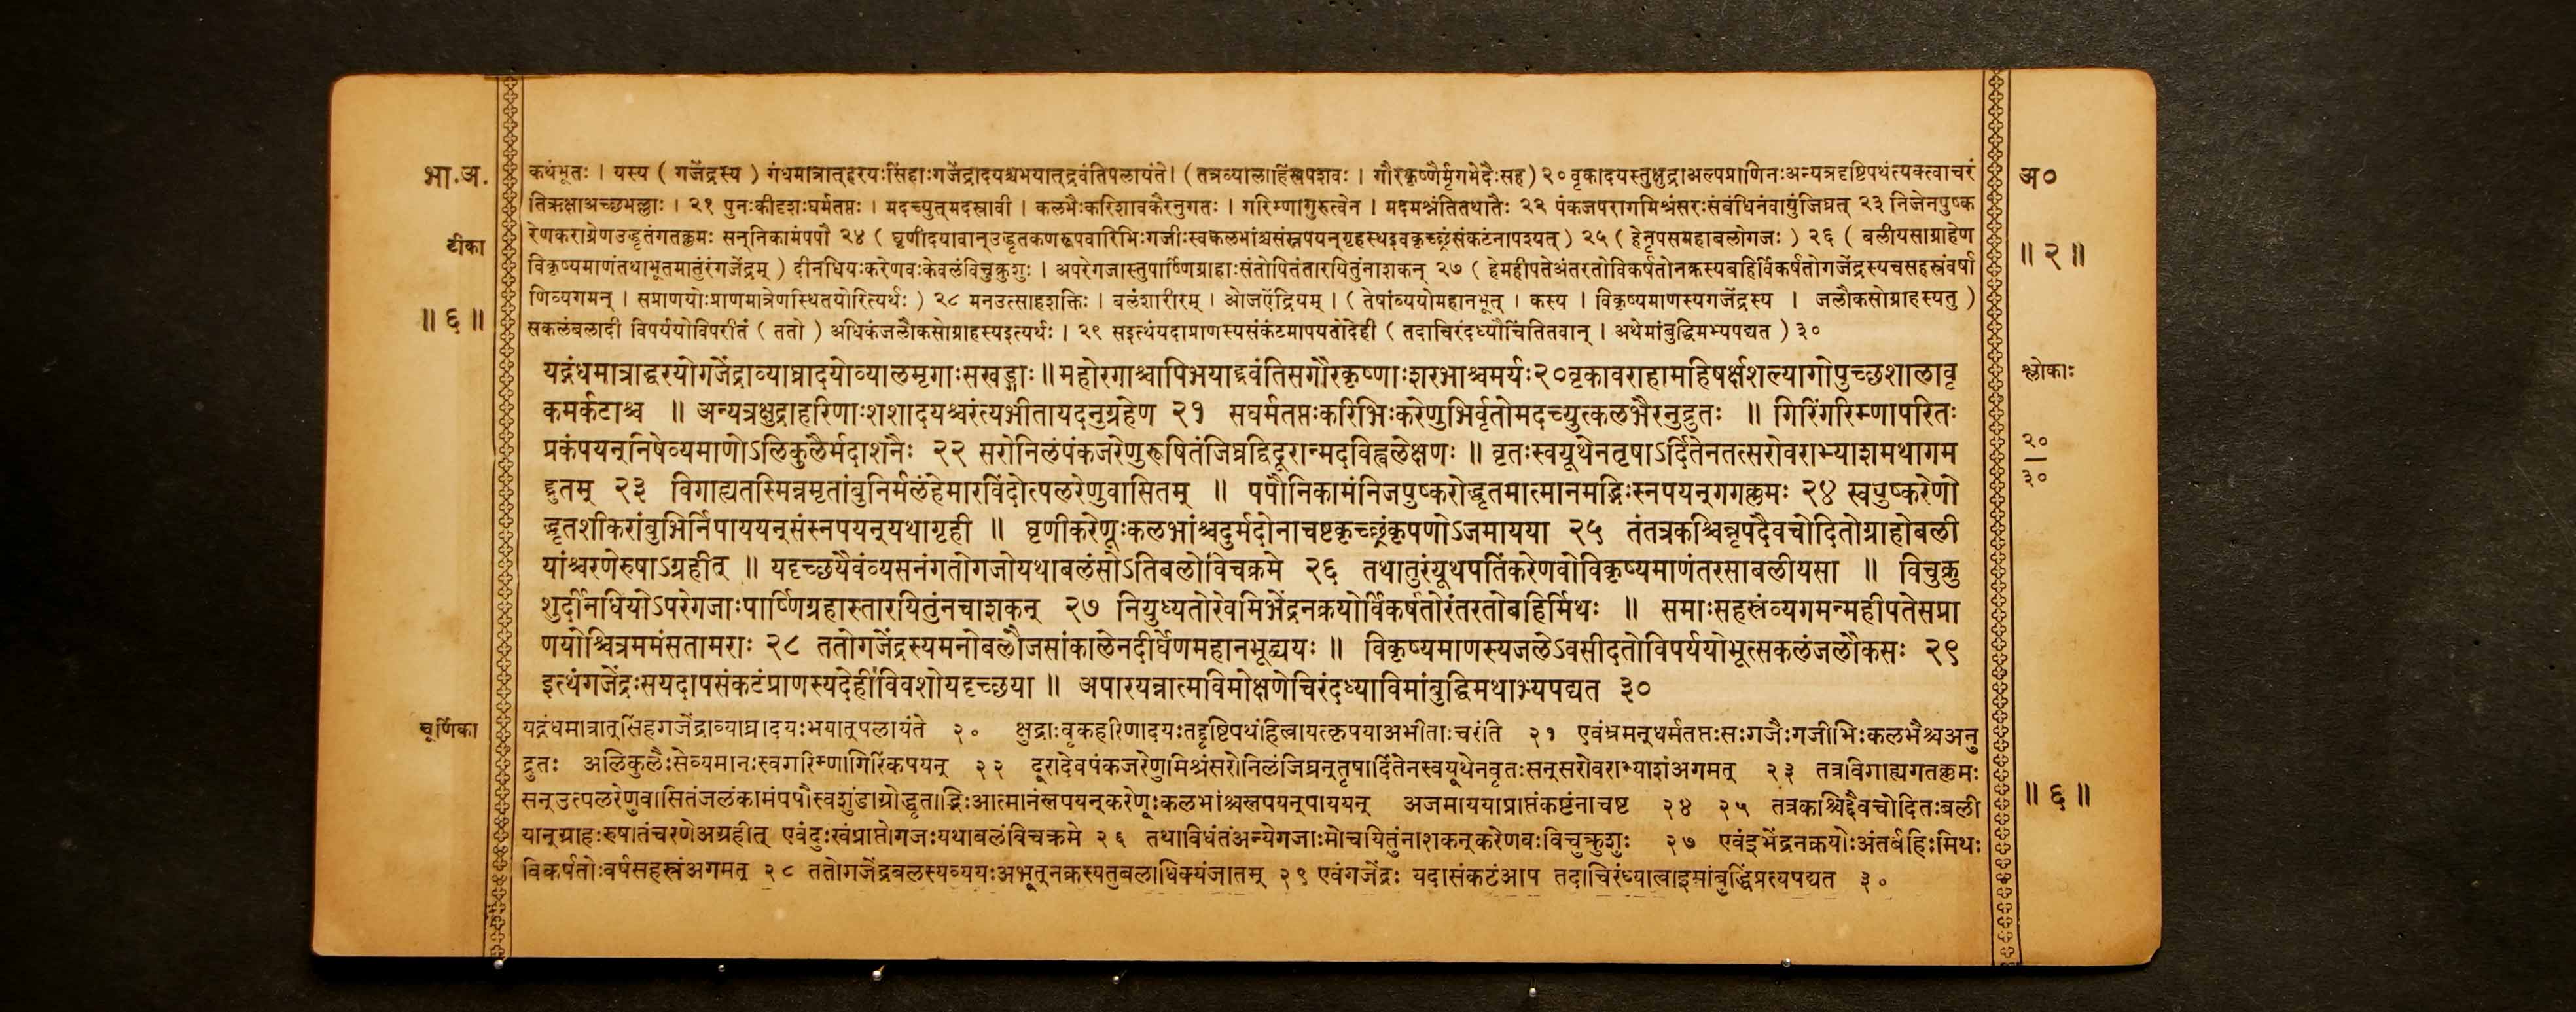 भा.अ.
टीका
॥ ६ ॥
कथंभूतः । यस्य ( गजेंद्रस्य ) गंधमात्रात्हरयःसिंहाःगजेंद्रादयश्चभयात्द्रवंतिपलायंते। (तत्रव्यालाहिंस्रपशवः । गौरकृष्णैर्मृगभेदैःसह) २० वृकादयस्तुक्षुद्राअल्पप्राणिनःअन्यत्रदृष्टिपथंत्यक्त्वाचरं
तिऋक्षाअच्छभल्लाः । २१ पुनःकीदृशःघर्मतप्तः । मदच्युत्मदस्रावी । कलभैःकरिशावकैरनुगतः । गरिम्णागुरुत्वेन । मदमश्नंतितथातैः २२ पंकजपरागमिश्रंसरःसंबंधिनंवायुंजिघ्रत् २३ निजेनपुष्क
रेणकराग्रेणउद्धृतंगतक्लमः सन्निकामंपपौ २४ ( घृणीदयावान्उद्धृतकणरूपवारिभिःगजीःस्वकलभांश्चसंस्नपयन्गृहस्थइवकृच्छ्रंसंकटंनापश्यत् ) २५ ( हेनृपसमहाबलोगजः ) २६ ( बलीयसाग्राहेण
विकृष्यमाणंतथाभूतमातुरंगजेंद्रम् ) दीनधियःकरेणवःकेवलंविचुक्रुशुः । अपरेगजास्तुपार्ष्णिग्राहाःसंतोपितंतारयितुंनाशकन् २७ ( हेमहीपतेअंतरतोविकर्षतोनक्रस्यबहिर्विकर्षतोगजेंद्रस्यचसहस्रंवर्षा
णिव्यगमन् । सप्राणयोःप्राणमात्रेणस्थितयोरित्यर्थः ) २८ मनउत्साहशक्तिः । बलंशारीरम् । ओजऐंद्रियम् । ( तेषांव्ययोमहानभूत् । कस्य । विकृष्यमाणस्यगजेंद्रस्य । जलौकसोग्राहस्यतु )
सकलंबलादी विपर्ययोविपरीतं ( ततो ) अधिकंजलौकसोग्राहस्यइत्यर्थः । २९ सइत्थंयदाप्राणस्यसंकटमापयतोदेही ( तदाचिरंदध्यौचिंतितवान् । अथेमांबुद्धिमभ्यपद्यत ) ३०
यद्गंधमात्राद्धरयोगजेंद्राव्याघ्रादयोव्यालमृगाःसखड्गाः॥महोरगाश्चापिभयाद्द्रवंतिसगौरकृष्णाःशरभाश्चमर्यः२०वृकावराहामहिषर्क्षशल्यागोपुच्छशालावृ
कमर्कटाश्च ॥ अन्यत्रक्षुद्राहरिणाःशशादयश्चरंत्यभीतायदनुग्रहेण २१ सघर्मतप्तःकरिभिःकरेणुभिर्वृतोमदच्युत्कलभैरनुद्रुतः ॥ गिरिंगरिम्णापरितः
प्रकंपयन्निषेव्यमाणोऽलिकुलैर्मदाशनैः २२ सरोनिलंपंकजरेणुरूषितंजिघ्रन्विदूरान्मदविह्वलेक्षणः ॥ वृतःस्वयूथेनतृषाऽर्दितेनतत्सरोवराभ्याशमथागम
द्द्रुतम् २३ विगाह्यतस्मिन्नमृतांबुनिर्मलंहेमारविंदोत्पलरेणुवासितम् ॥ पपौनिकामंनिजपुष्करोद्धृतमात्मानमद्भिःस्नपयन्गगक्लमः २४ स्वपुष्करेणो
द्धृतशीकरांबुभिर्निपाययन्संस्नपयन्यथागृही ॥ घृणीकरेणूःकलभांश्चदुर्मदोनाचष्टकृच्छ्रंकृपणोऽजमायया २५ तंतत्रकश्चिन्नृपदैवचोदितोग्राहोबली
यांश्चरणेरुषाऽग्रहीत् ॥ यदृच्छयैवंव्यसनंगतोगजोयथाबलंसोऽतिबलोविचक्रमे २६ तथातुरंयूथपतिंकरेणवोविकृष्यमाणंतरसाबलीयसा ॥ विचुक्रु
शुर्दीनधियोऽपरेगजाःपार्ष्णिग्रहास्तारयितुंनचाशकन् २७ नियुध्यतोरेवमिभेंद्रनक्रयोर्विकर्षतोरंतरतोबहिर्मिथः ॥ समाःसहस्रंव्यगमन्महीपतेसप्रा
णयोश्चित्रममंसतामराः २८ ततोगजेंद्रस्यमनोबलौजसांकालेनदीर्घेणमहानभूद्व्ययः ॥ विकृष्यमाणस्यजलेऽवसीदतोविपर्ययोभूत्सकलंजलौकसः २९
इत्थंगजेंद्रःसयदापसंकटंप्राणस्यदेहीविवशोयदृच्छया ॥ अपारयन्नात्मविमोक्षणेचिरंदध्याविमांबुद्धिमथाभ्यपद्यत ३०
चूर्णिका
यद्गंधमात्रात्सिंहगजेंद्राव्याघ्रादयःभयात्पलायंते २० क्षुद्राःवृकहरिणादयःतद्दृष्टिपथंहित्वायत्कृपयाअभीताःचरंति २१ एवंभ्रमन्घर्मतप्तःसःगजैःगजीभिःकलभैश्चअनु
द्रुतः अलिकुलैःसेव्यमानःस्वगरिम्णागिरिंकंपयन् २२ दूरादेवपंकजरेणुमिश्रंसरोनिलंजिघ्रन्तृषार्दितेनस्वयूथेनवृतःसन्सरोवराभ्याशंअगमत् २३ तत्रविगाह्यगतक्लमः
सन्उत्पलरेणुवासितंजलंकामंपपौस्वशुंडाग्रोद्धृताद्भिःआत्मानंस्नपयन्करेणूःकलभांश्चस्नपयन्पाययन् अजमाययाप्राप्तंकष्टंनाचष्ट २४ २५ तत्रकश्चिद्दैवचोदितःबली
यान्ग्राहःरुषातंचरणेअग्रहीत् एवंदुःखंप्राप्तोगजःयथाबलंविचक्रमे २६ तथाविधंतंअन्येगजाःमोचयितुंनाशकन्करेणवःविचुक्रुशुः २७ एवंइभेंद्रनक्रयोःअंतर्बहिःमिथः
विकर्षतोःवर्षसहस्रंअगमत् २८ ततोगजेंद्रबलस्यव्ययःअभूत्नक्रस्यतुबलाधिक्यंजातम् २९ एवंगजेंद्रः यदासंकटंआप तदाचिरंध्यात्वाइमांबुद्धिंप्रत्यपद्यत ३०
अ०
॥ २ ॥
श्लोकाः
२०
३०
॥ ६ ॥